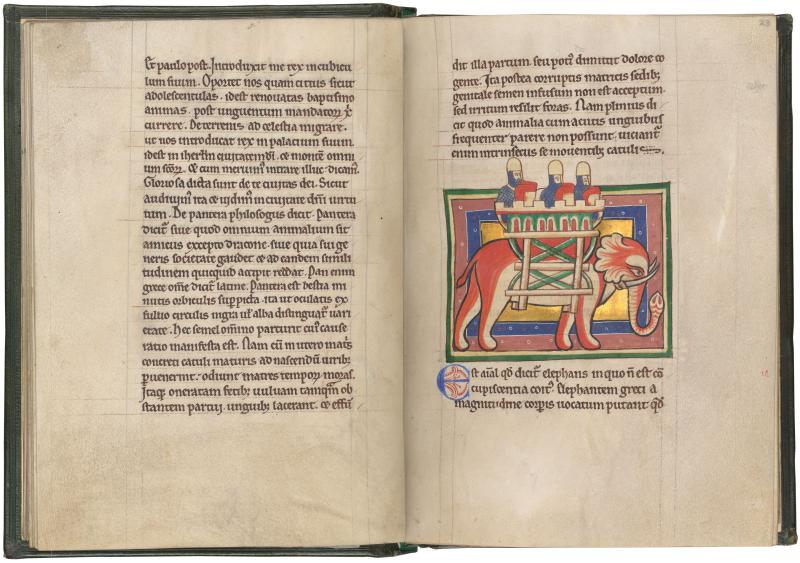 Et paulo post. Introduxit me rex in cubicu
lum suum. Oportet nos quam citius sicut
adolescentulas. idest renouatas baptismo
animas. post unguentum mandatorum χρι
currere. De terrenis ad celestia migrare.
ut nos introducat rex in palacium suum.
idest in iherłm ciuitatem dei. ce monte omni
um scōꝝ. Ce cum merum intrare illuc dicam.
Gloriosa dicta sunt de te ciuitas dei. Sicut
audiuimꝰ ita ce uidimꝰ in ciuitate dñi uirtu
tum. De pantera philosogus dicit. Pantera
dicit siue quod omnium animalium sit
amicus excepto dracone. siue quia sui ge
neris societate gaudet ce ad eandem simili
tudinem quicquid accipit reddat. Pan enim
grece omne dicit latine. Pantera est bestia mi
nutis orbiculis suppicta. ita ut oculatis ex
fuluo circulis nigra ul alba distinguat uari
etate. hec semel omnino parturit cuiꝰ cause
ratio manifesta est. Nam cū in utero matis
concreti catuli maturis ad nascendū uirib
puenerint. odiunt matres tempory moras.
Itaqꝫ oneratam fetib uuluam tamqm̄ ob
stantem partui. unguib lacerant. ce effū
23
dit illa partum. seu potiꝰ dimittit dolore co
gente. Ita postea corruptis matricis sedib
genitale semen infusum non est acceptum.
sed irritum resilit foras. Nam plinius di
cit quod animalia cum acutis unguibus
frequenter parere non possunt. uiciant
enim intrinsecus se mouentib catulis
Est aīal qđ dicit elephans in quo ñ est cō
cupiscentia coitꝰ. Elephantem greci a
magnitudine corpis uocatum putant. qđ